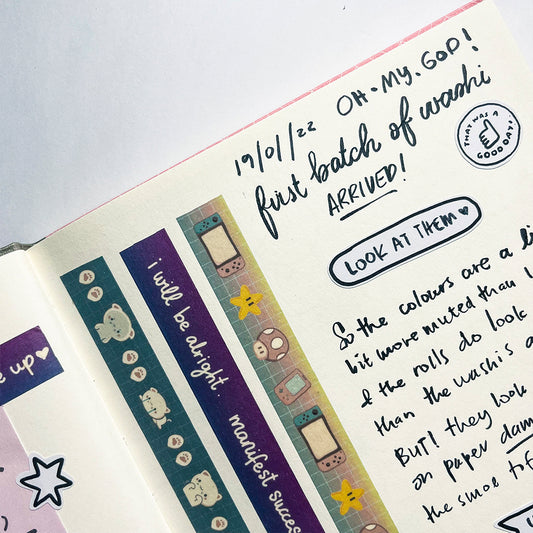 19/01/22 OH·MY·GOD!
first batch of washi
ARRIVED!
THAT WAS A GOOD DAY!
LOOK AT THEM ♥
So the colours are a
bit more muted than
& the rolls do look
than the washis
BUT! they look
on paper
the
i will be alright. manifest
e up ♥